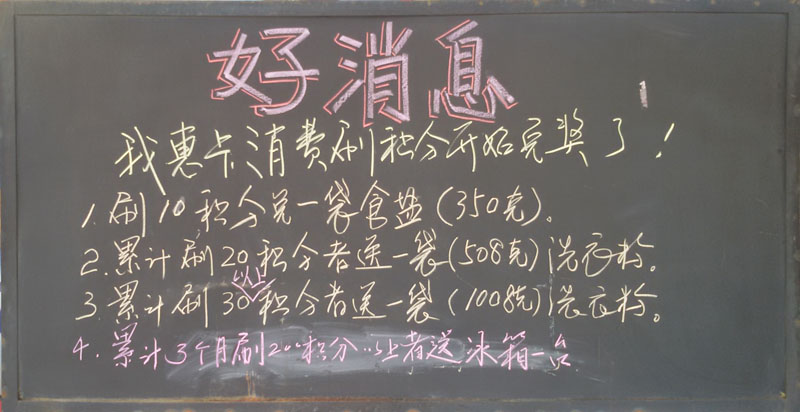 好消息
我惠卡消费刷积分开始兑奖了！
1.刷10积分兑一袋食盐(350克)。
2.累计刷20积分者送一袋(508克)洗衣粉。
3.累计刷30以上积分者送一袋(1008克)洗衣粉。
4.累计3个月刷200积分以上者送冰箱一台